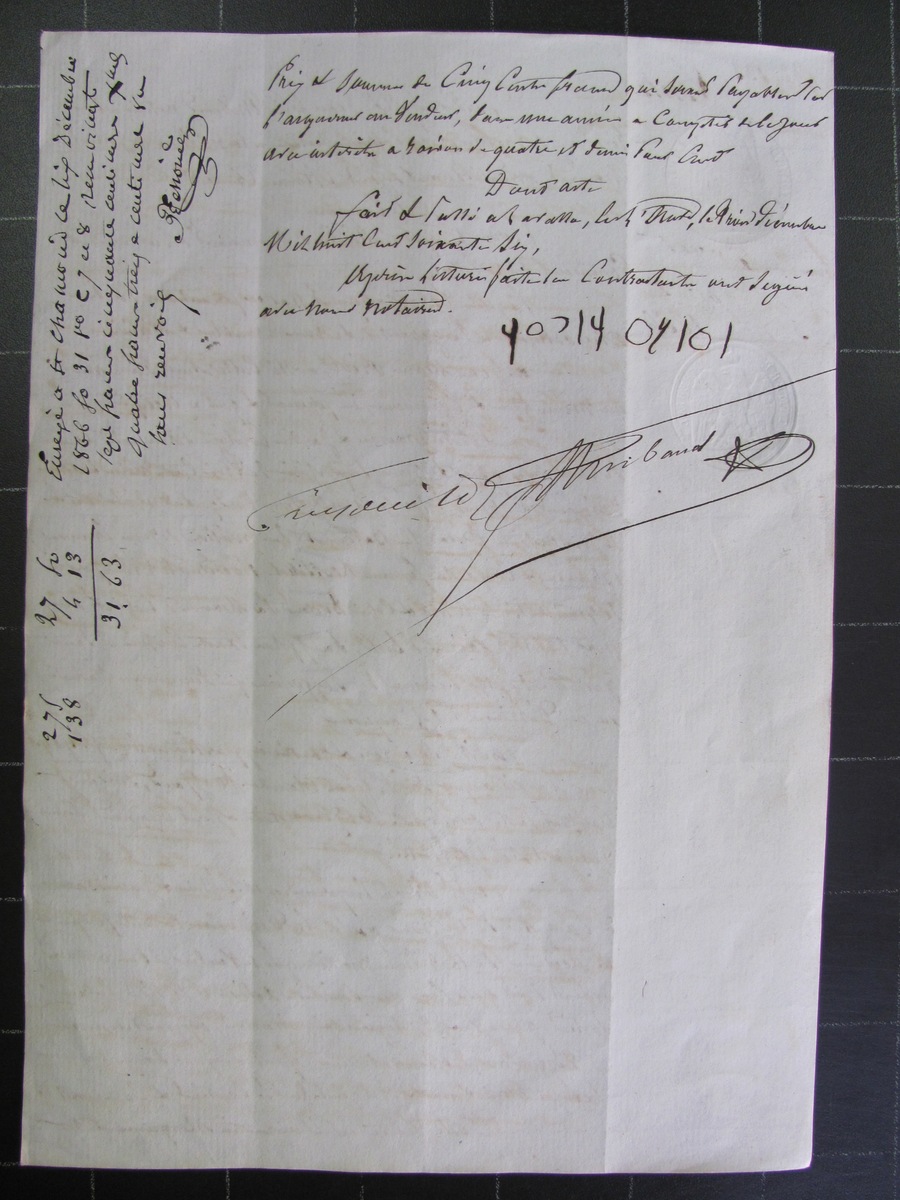 Prix & Somme de Cinq Cents francs qui seront payables par
l'acquéreur au Vendeur, dans une année a Compter de ce jour
avec intérêts a raison de quatre et demi pour Cent
Dont acte
fait & passé a la  le trois Décembre
Mil huit Cent Soixante Six,
Après lecture faite les Contractants ont signé
avec nous notaires.
Thibaud
Enregé a St Chamond le six Décembre
1866 fo 31 vo C 7 et 8 reçu vingt
sept francs cinquante centimes &
quatre francs treize centimes
sans renvoi
27 50
4 13
31. 63
275
138